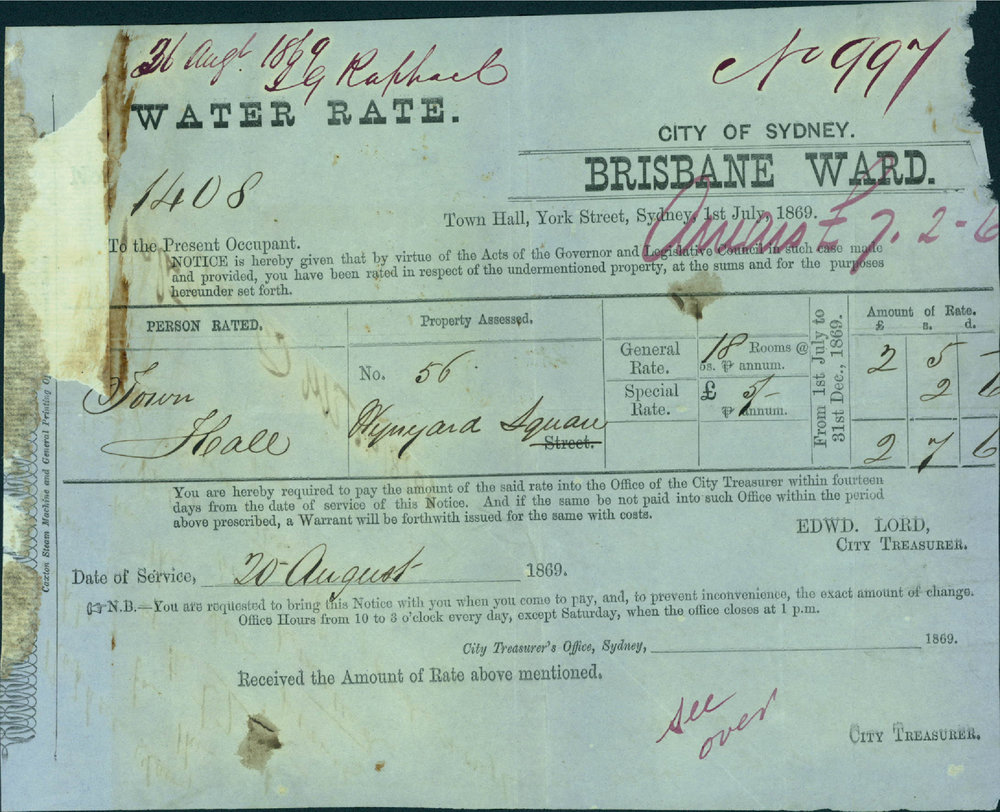 26 Augt. 1869
J G Raphael
No 997
WATER RATE.
CITY OF SYDNEY.
BRISBANE WARD.
1408
Arrears £7.2-6
Town Hall, York Street, Sydney, 1st July, 1869.
To the Present Occupant.
NOTICE is hereby given that by virtue of the Acts of the Governor and Legislative Council in such case made
and provided, you have been rated in respect of the undermentioned property, at the sums and for the purposes
hereunder set forth.
PERSON RATED.
Town
Hall
Property Assessed.
No. 56
Wynyard Square
Street.
General Rate.
18 Rooms @
5s. ⅌ annum.
Special Rate.
£ 5/-
⅌ annum.
From 1st July to
31st Dec., 1869.
Amount of Rate.
£ s. d.
2 5 -
2 6
2 7 6
You are hereby required to pay the amount of the said rate into the Office of the City Treasurer within fourteen
days from the date of service of this Notice. And if the same be not paid into such Office within the period
above prescribed, a Warrant will be forthwith issued for the same with costs.
EDWD. LORD,
CITY TREASURER.
Date of Service, 20 August 1869.
☞ N.B.—You are requested to bring this Notice with you when you come to pay, and, to prevent inconvenience, the exact amount of change.
Office Hours from 10 to 3 o'clock every day, except Saturday, when the office closes at 1 p.m.
City Treasurer's Office, Sydney, 1869.
Received the Amount of Rate above mentioned.
see
over
CITY TREASURER.
Caxton Steam Machine and General Printing